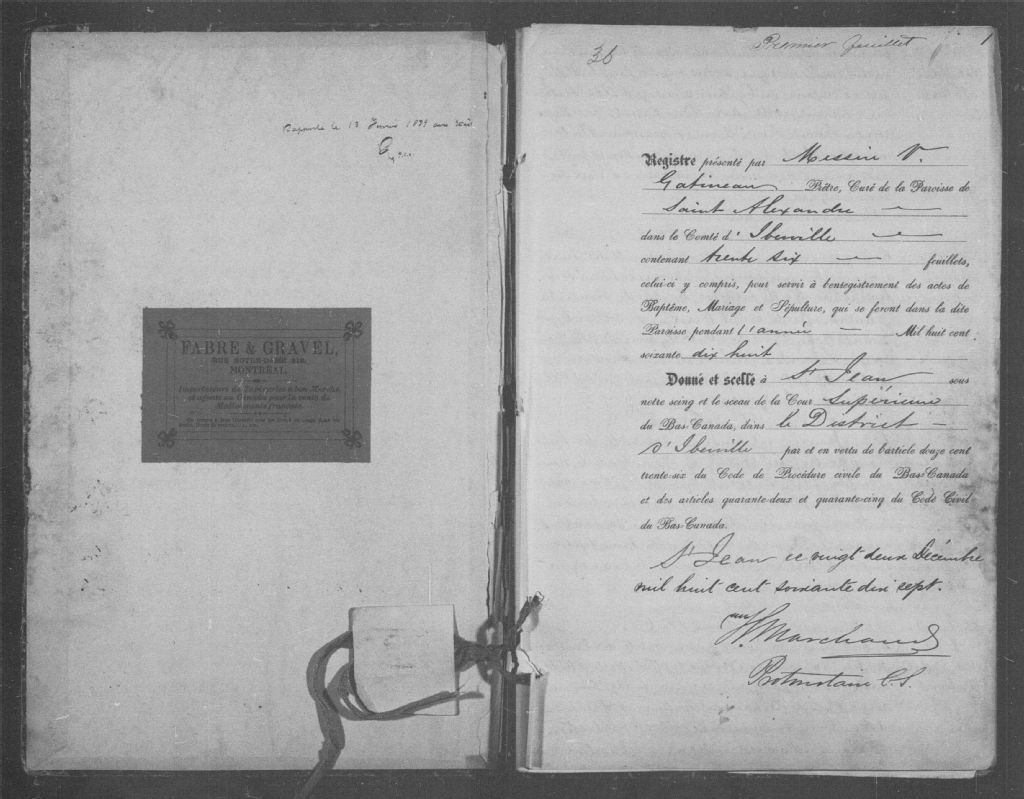 Rapporté le 13 1879
FABRE & GRAVEL,
RUE NOTRE-DAME 219,
MONTREAL.
Importateurs de
et agents au Canada pour la vente de
36
Premier feuillet
1
Registre présenté par Messire V.
Gatineau Prêtre, Curé de la Paroisse de
Saint Alexandre
dans le Comté d'Iberville
contenant trente six feuillets,
celui-ci y compris, pour servir à l'enregistrement des actes de
Baptême, Mariage et Sépulture, qui se feront dans la dite
Paroisse pendant l'année Mil huit cent
soixante dix huit
Donné et scellé à St Jean sous
notre seing et le sceau de la Cour Supérieure
du Bas-Canada, dans le District
d'Iberville par et en vertu de l'article douze cent
trente-six du Code de Procédure civile du Bas-Canada
et des articles quarante-deux et quarante-cinq du Code Civil
du Bas-Canada.
St Jean ce vingt deux Décembre
mil huit cent soixante dix sept.
Marchand
Protonotaire C.S.